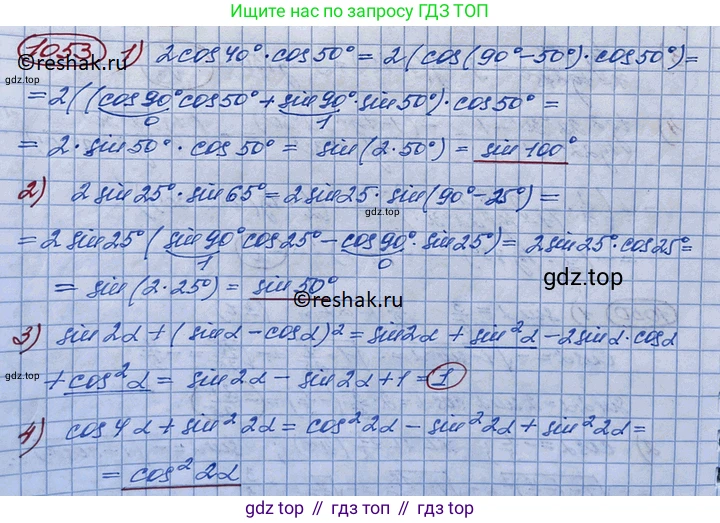 Ищите нас по запросу ГДЗ ТОП
1053 1) 2cos40°·cos50° = 2(cos(90°-50°)·cos50°)=
©reshak.ru
gdz.top
= 2((cos90°cos50°+sin90°·sin50°)·cos50° =
0 1
= 2·sin50°·cos50° = sin(2·50°) = sin100°
2) 2sin25°·sin65°=2sin25·sin(90°-25°)=
gdz.top
= 2sin25°(sin90°cos25°-cos90°·sin25°)= 2sin25°·cos25°=
1 0
gdz.top
= sin(2·25°) = sin50°
©reshak.ru
3) sin2α+(sinα-cosα)²=sin2α+sin²α-2sinα·cosα
gdz.top
+cos²α = sin2α-sin2α+1=1
4) cos4α+sin²2α=cos²2α-sin²2α+sin²2α=
= cos²2α
gdz.top // gdz.top // gdz.top